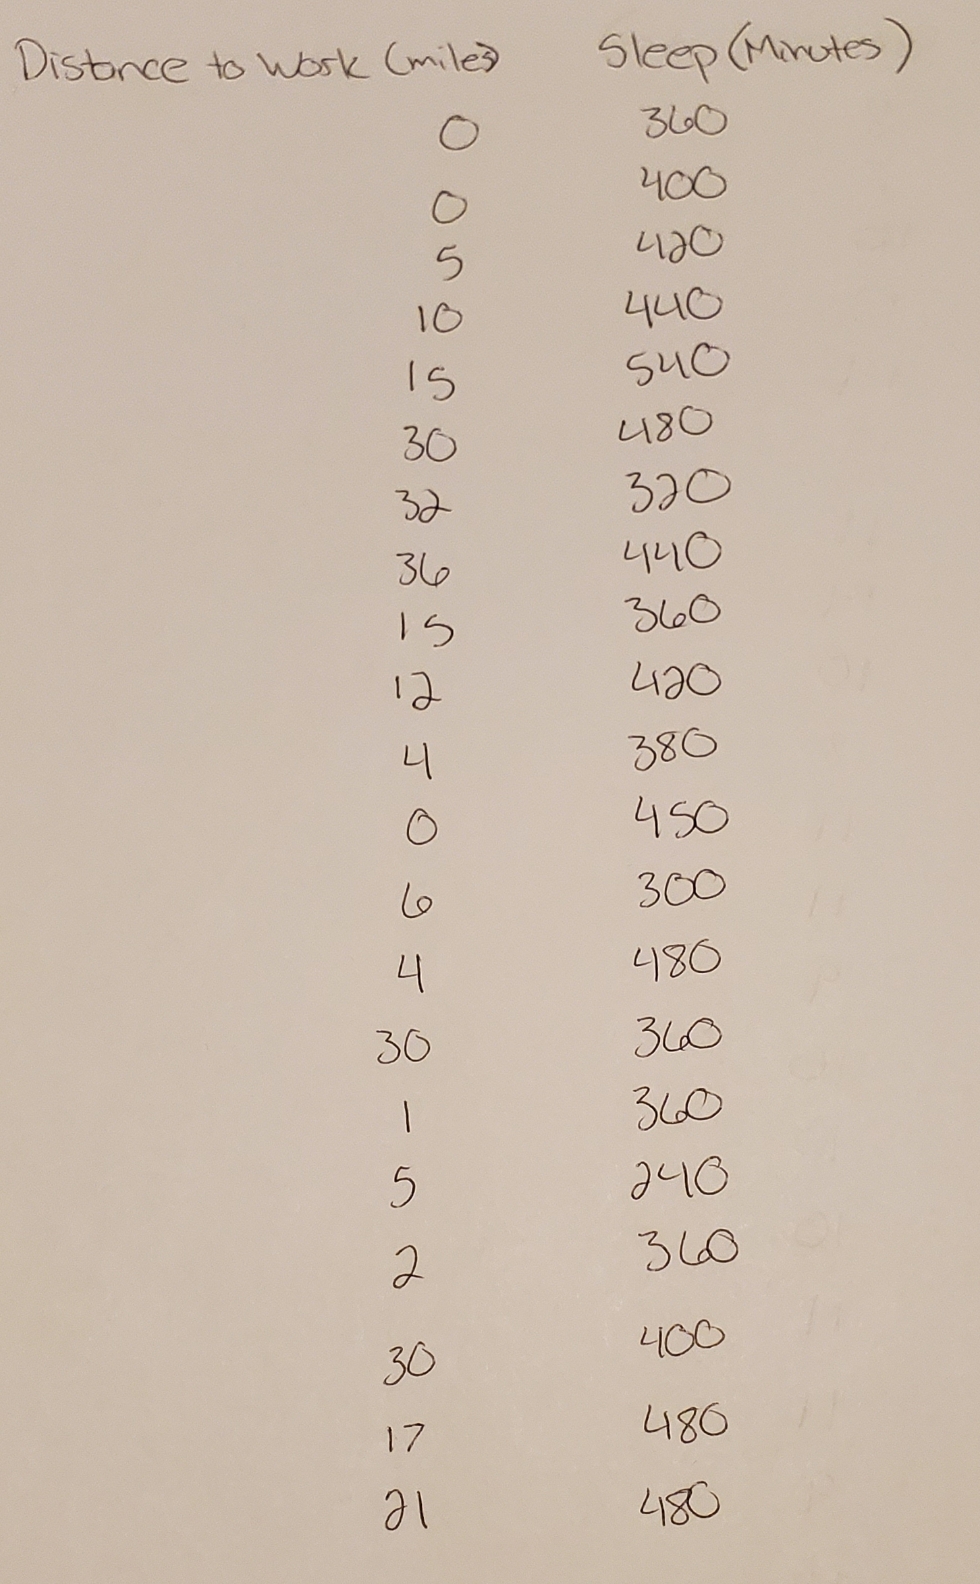 Distance to Work (miles) Sleep (Minutes)
0 360
0 400
5 420
10 440
15 540
30 480
32 320
36 440
15 360
12 420
4 380
0 450
6 300
4 480
30 360
1 360
5 240
2 360
30 400
17 480
21 480